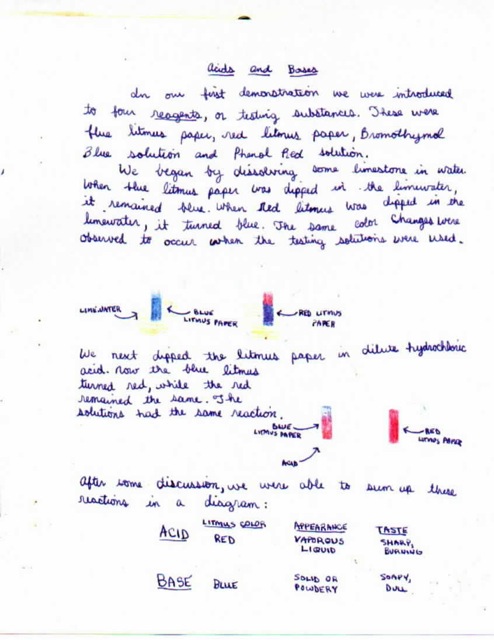 Acids and Bases
In our first demonstration we were introduced
to four reagents, or testing substances. These were
blue litmus paper, red litmus paper, Bromothymol
Blue solution and Phenol Red solution.
We began by dissolving some limestone in water.
When blue litmus paper was dipped in the limewater,
it remained blue. When Red litmus was dipped in the
limewater, it turned blue. The same color changes were
observed to occur when the testing solutions were used.
LIMEWATER
BLUE LITMUS PAPER
RED LITMUS PAPER
We next dipped the litmus paper in dilute hydrochloric
acid. Now the blue litmus
turned red, while the red
remained the same. The
solutions had the same reaction.
BLUE LITMUS PAPER
RED LITMUS PAPER
ACID
After some discussion, we were able to sum up these
reactions in a diagram:
LITMUS COLOR APPEARANCE TASTE
ACID RED VAPOROUS LIQUID SHARP, BURNING
BASE BLUE SOLID OR POWDERY SOAPY, DULL